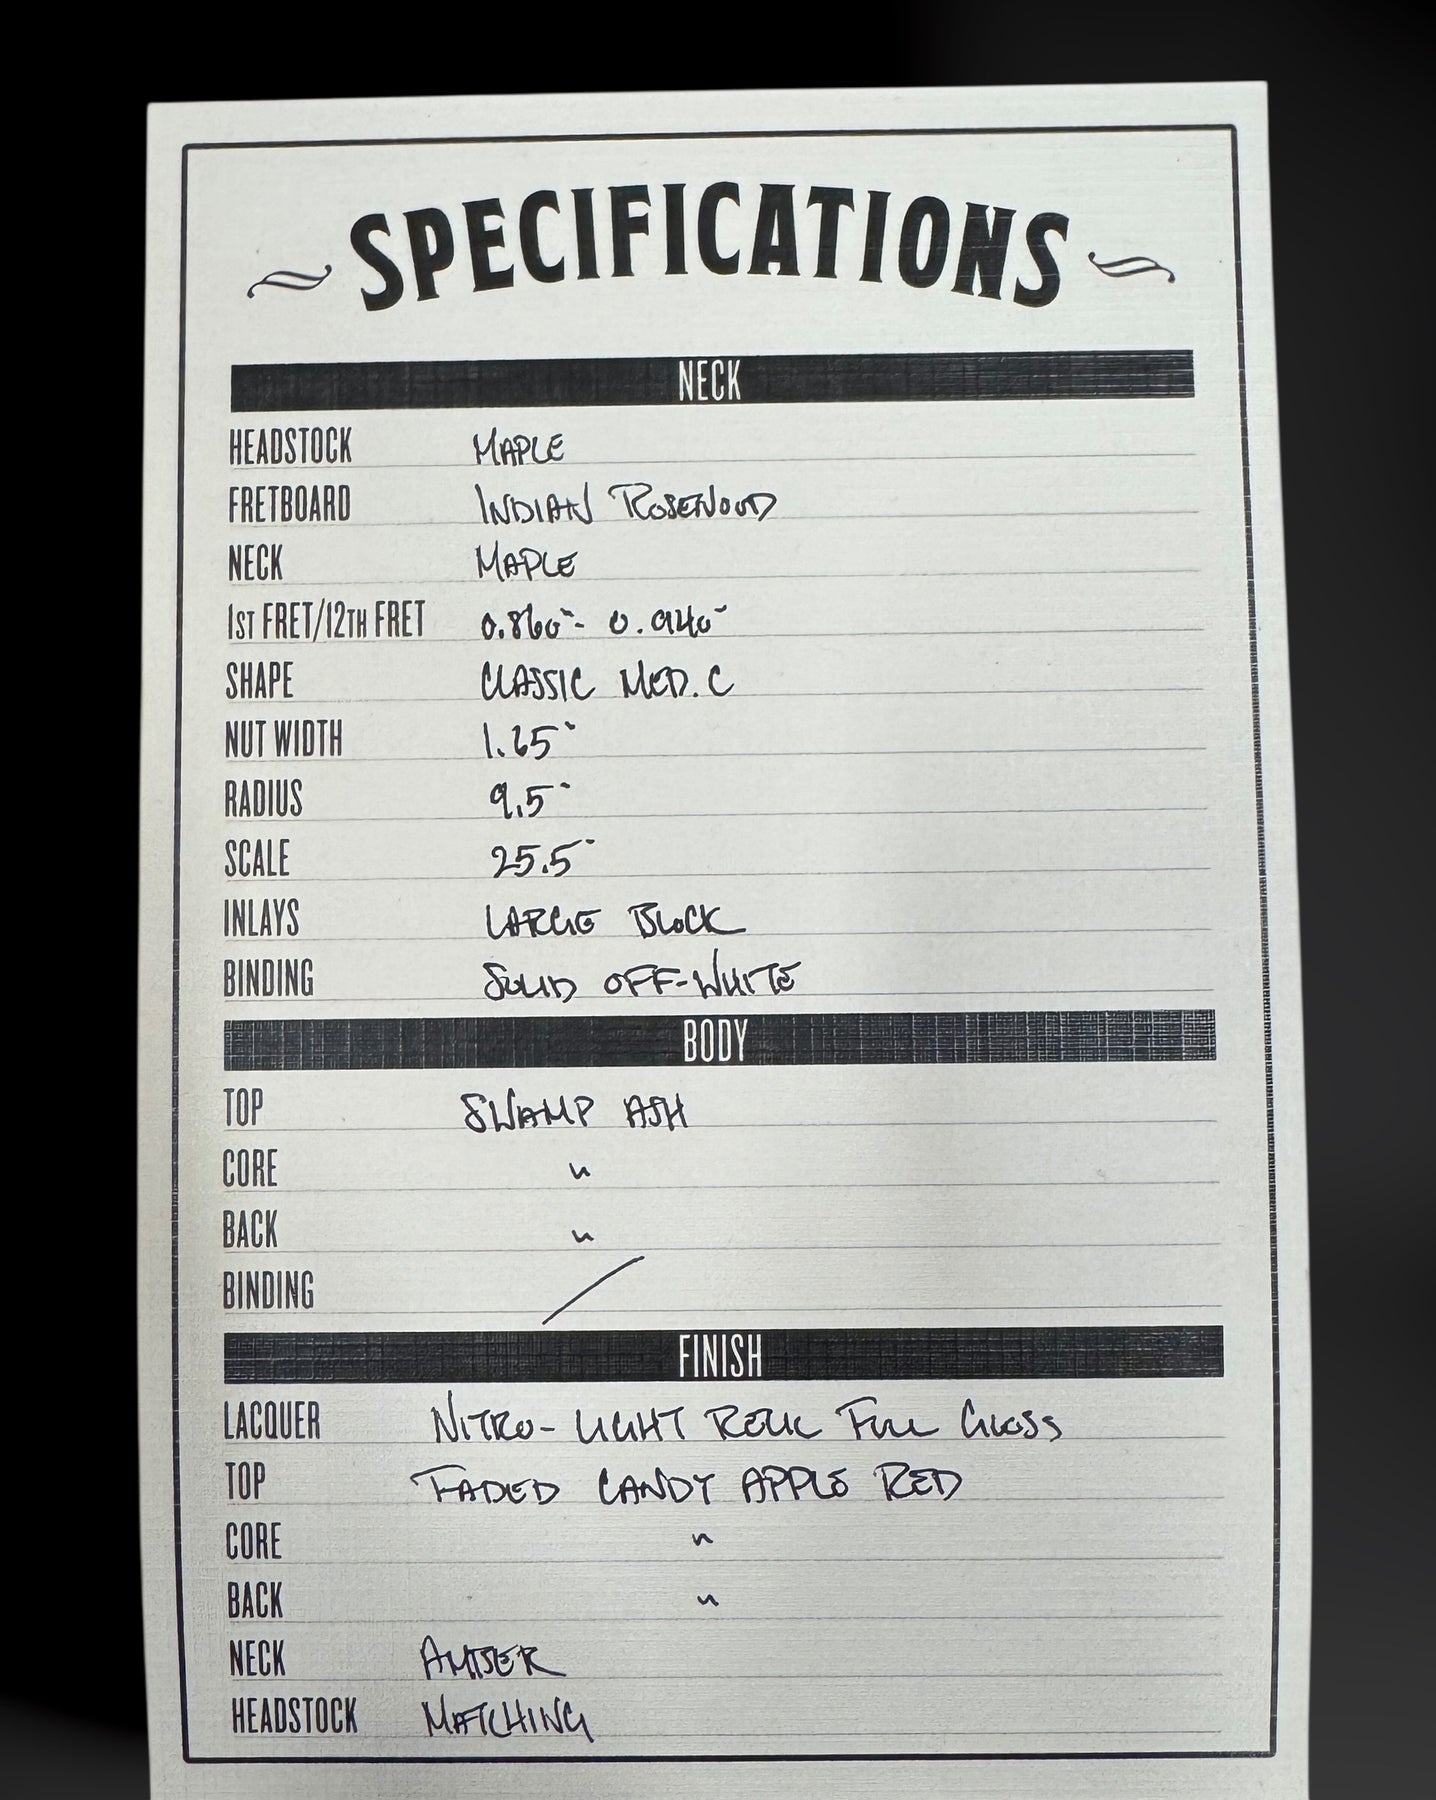 SPECIFICATIONS
NECK
HEADSTOCK MAPLE
FRETBOARD INDIAN ROSEWOOD
NECK MAPLE
1ST FRET/12TH FRET 0.860" - 0.940"
SHAPE CLASSIC MED. C
NUT WIDTH 1.65"
RADIUS 9.5"
SCALE 25.5"
INLAYS LARGE BLOCK
BINDING SOLID OFF-WHITE
BODY
TOP SWAMP ASH
CORE "
BACK "
BINDING /
FINISH
LACQUER NITRO - LIGHT RELIC FULL GLOSS
TOP FADED CANDY APPLE RED
CORE "
BACK "
NECK AMBER
HEADSTOCK MATCHING